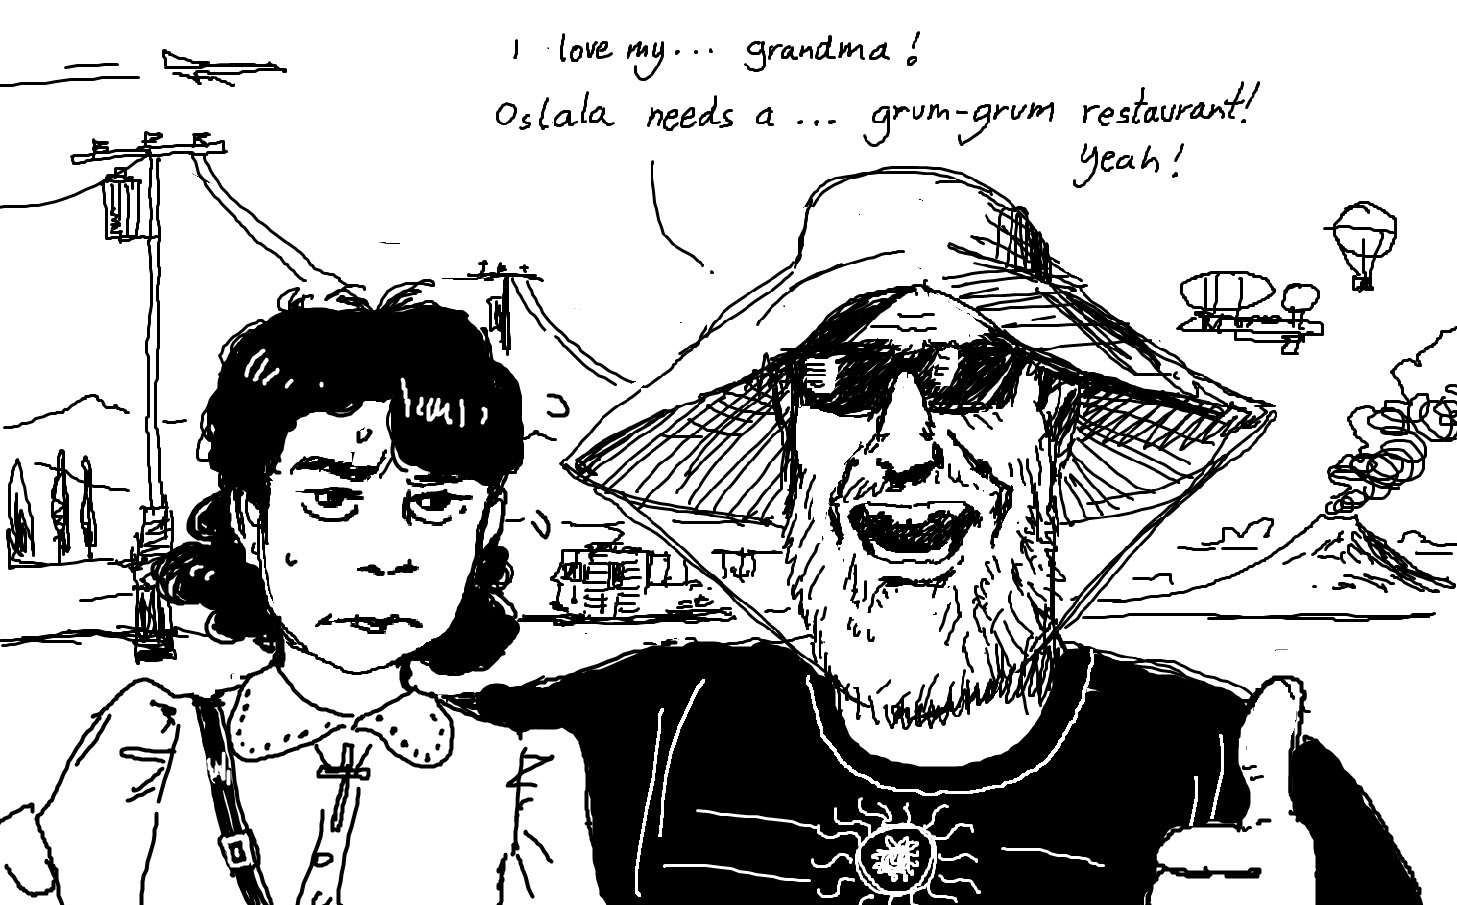 I love my... grandma!
Oslala needs a ... grum-grum restaurant!
Yeah!